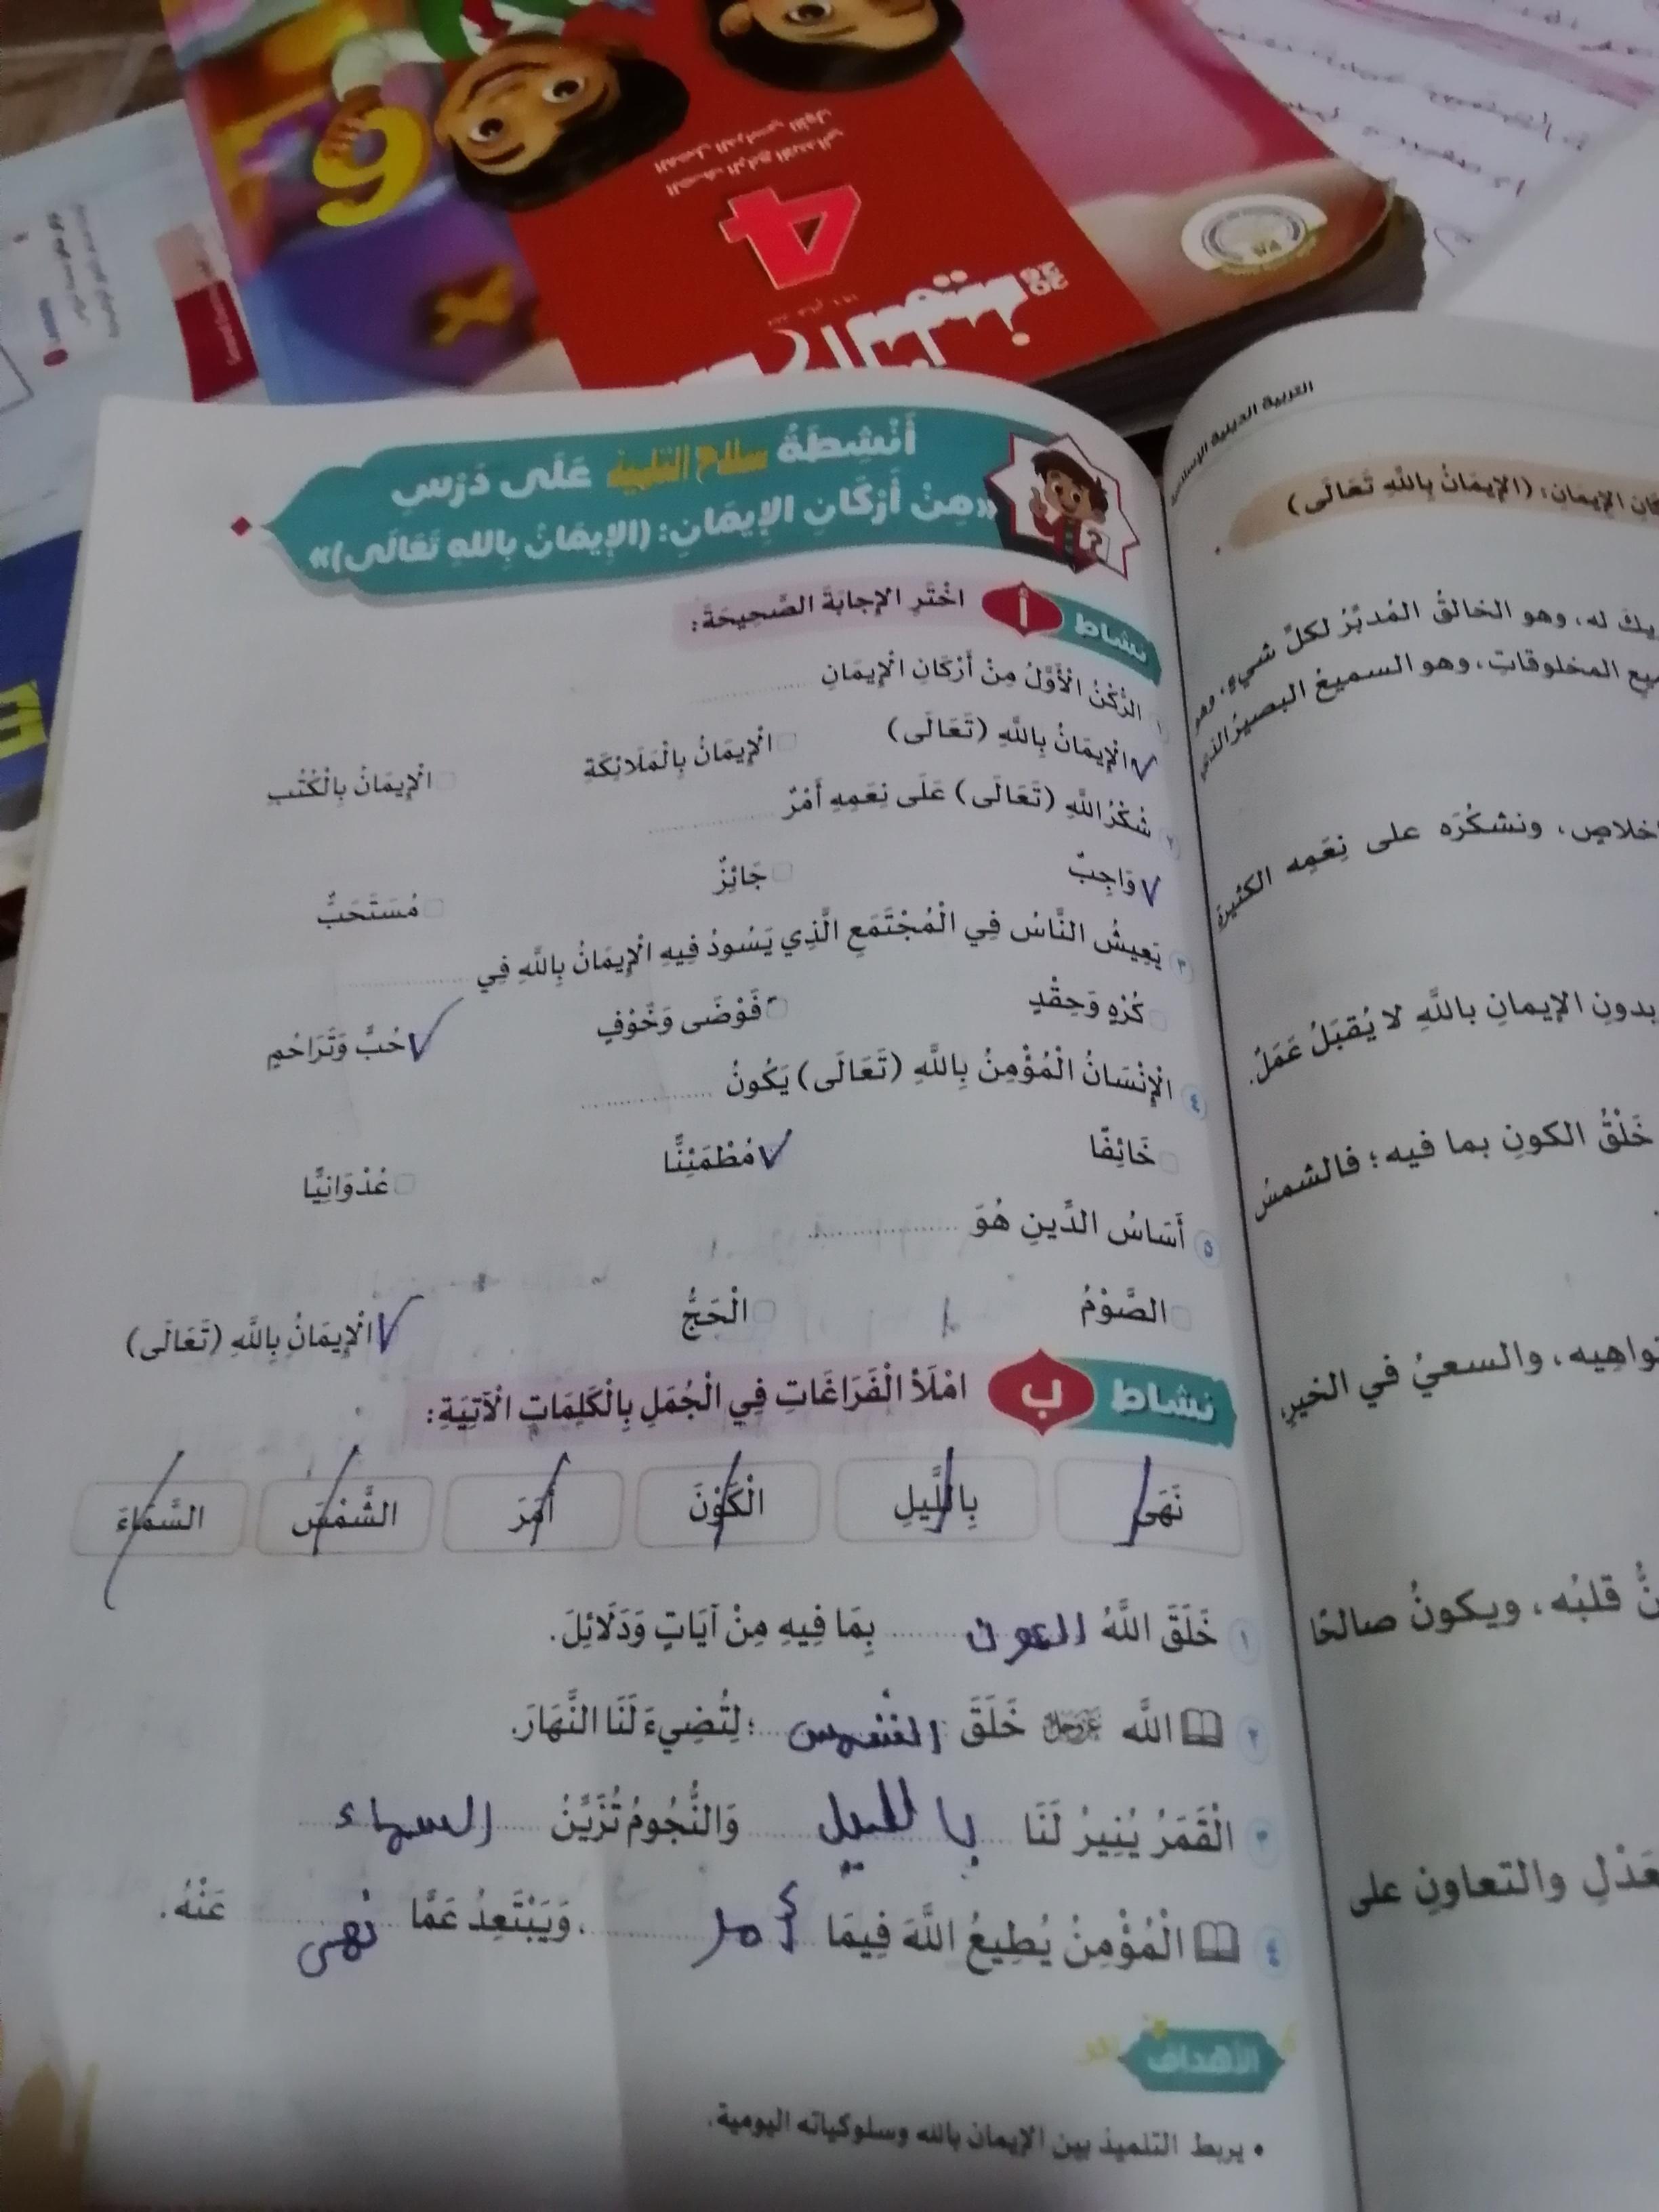 4
أَنْشِطَةُ سلاح التلميذ عَلَى دَرْسِ
«مِنْ أَرْكَانِ الإِيمَانِ: (الإِيمَانُ بِاللهِ تَعَالَى)»
نشاط أ اخْتَرِ الإِجَابَةَ الصَّحِيحَةَ:
١ الرُّكْنُ الْأَوَّلُ مِنْ أَرْكَانِ الْإِيمَانِ ............
الْإِيمَانُ بِاللَّهِ (تَعَالَى) الْإِيمَانُ بِالْمَلَائِكَةِ الْإِيمَانُ بِالْكُتُبِ
٢ شُكْرُ اللَّهِ (تَعَالَى) عَلَى نِعَمِهِ أَمْرٌ ............
وَاجِبٌ جَائِزٌ مُسْتَحَبٌّ
٣ يَعِيشُ النَّاسُ فِي الْمُجْتَمَعِ الَّذِي يَسُودُ فِيهِ الْإِيمَانُ بِاللَّهِ فِي ............
كُرْهٍ وَحِقْدٍ فَوْضَى وَخَوْفٍ حُبٍّ وَتَرَاحُمٍ
٤ الْإِنْسَانُ الْمُؤْمِنُ بِاللَّهِ (تَعَالَى) يَكُونُ ............
خَائِفًا مُطْمَئِنًّا عُدْوَانِيًّا
٥ أَسَاسُ الدِّينِ هُوَ ............
الصَّوْمُ الْحَجُّ الْإِيمَانُ بِاللَّهِ (تَعَالَى)
نشاط ب امْلَأْ الْفَرَاغَاتِ فِي الْجُمَلِ بِالْكَلِمَاتِ الْآتِيَةِ:
نَهَى بِاللَّيلِ الْكَوْنَ أَمَرَ الشَّمْسَ السَّمَاءَ
١ خَلَقَ اللَّهُ الكون بِمَا فِيهِ مِنْ آيَاتٍ وَدَلَائِلَ.
٢ اللَّه عز وجل خَلَقَ الشمس ؛ لِتُضِيءَ لَنَا النَّهَارَ.
٣ الْقَمَرُ يُنِيرُ لَنَا بالليل وَالنُّجُومُ تُزَيِّنُ السماء
٤ الْمُؤْمِنُ يُطِيعُ اللَّهَ فِيمَا أمر ، وَيَبْتَعِدُ عَمَّا نهى عَنْهُ.
الأهداف
• يربط التلميذ بين الإيمان بالله وسلوكياته اليومية.
التربية الدينية الإسلامية
الإيمان: (الإِيمَانُ بِاللَّهِ تَعَالَى)
له، وهو الخالقُ المُدبِّرُ لكلِّ شيءٍ، وهو
المخلوقاتِ، وهو السميعُ البصيرُ الذي
ونشكُرَه على نِعَمِه الكثيرةِ
بدونِ الإيمانِ باللَّهِ لا يُقبَلُ عَمَلٌ.
خَلْقُ الكونِ بما فيه؛ فالشمسُ
والسعيُ في الخيرِ
قلبُه، ويكونُ صالحًا
والتعاونِ على